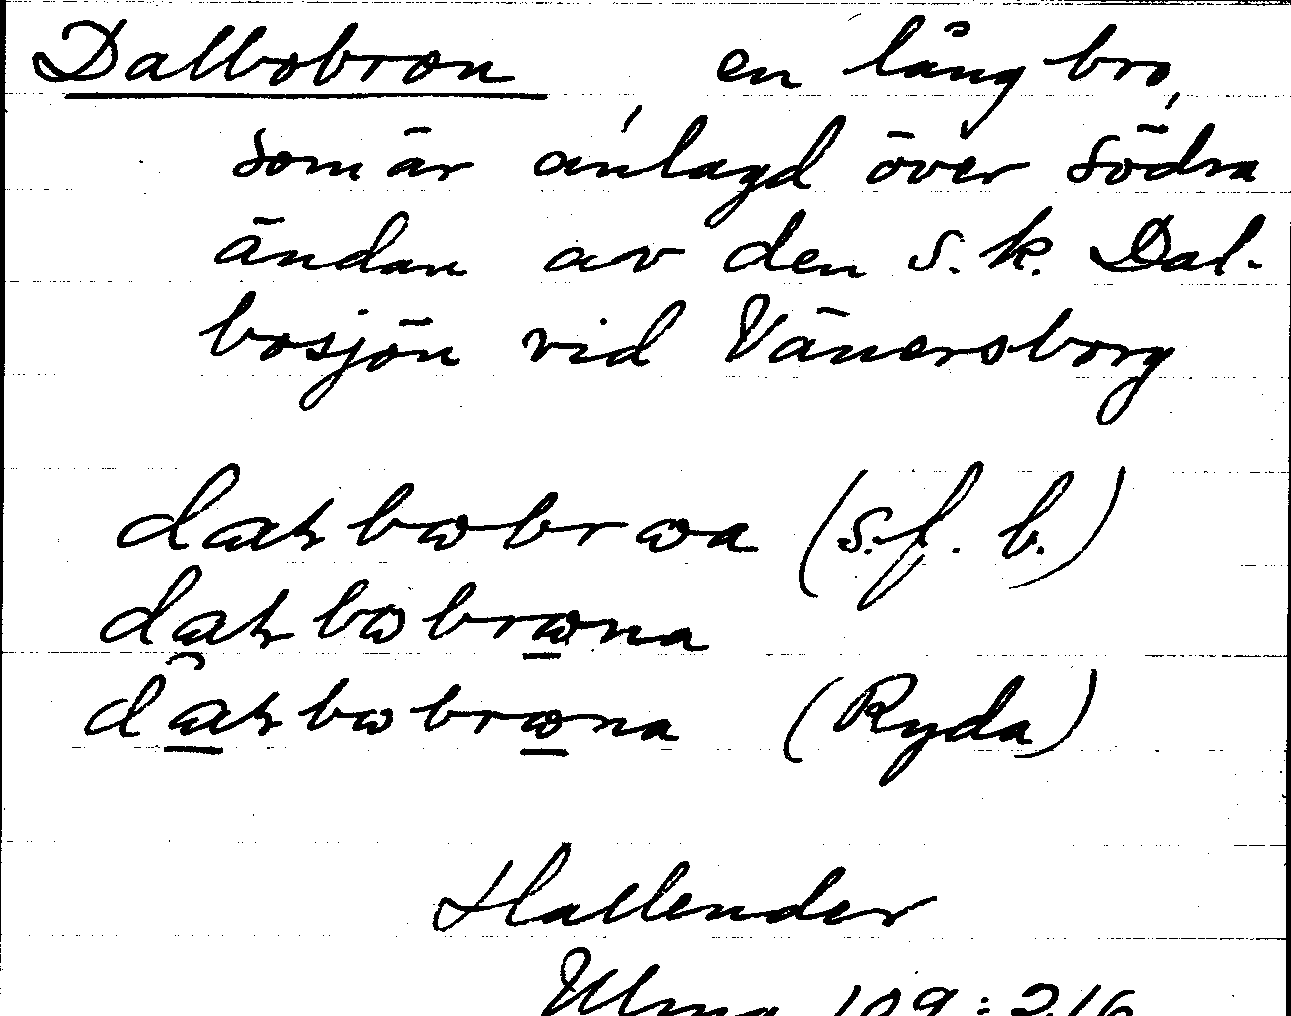 Dalbobron en lång bro,
som är anlagd över södra
ändan av den s.k. Dal-
bosjön vid Vänersborg
(s.f. b.)
(Ryda)
Hallender
Ulma 109:216